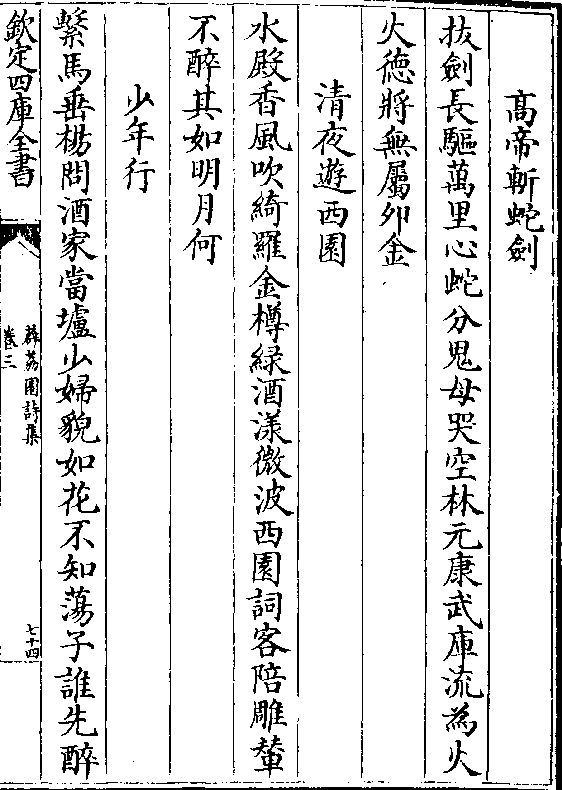 高帝斬蛇劍
拔劍長驅萬里心蛇分鬼母哭空林元康武庫流為火
火德將無屬夘金
清夜遊西園
水殿香風吹綺羅金樽緑酒漾微波西園詞客陪雕輦
不醉其如明月何
少年行
繫馬垂楊問酒家當壚少婦貌如花不知蕩子誰先醉
欽定四庫全書
薜荔園詩集
卷三
七十四